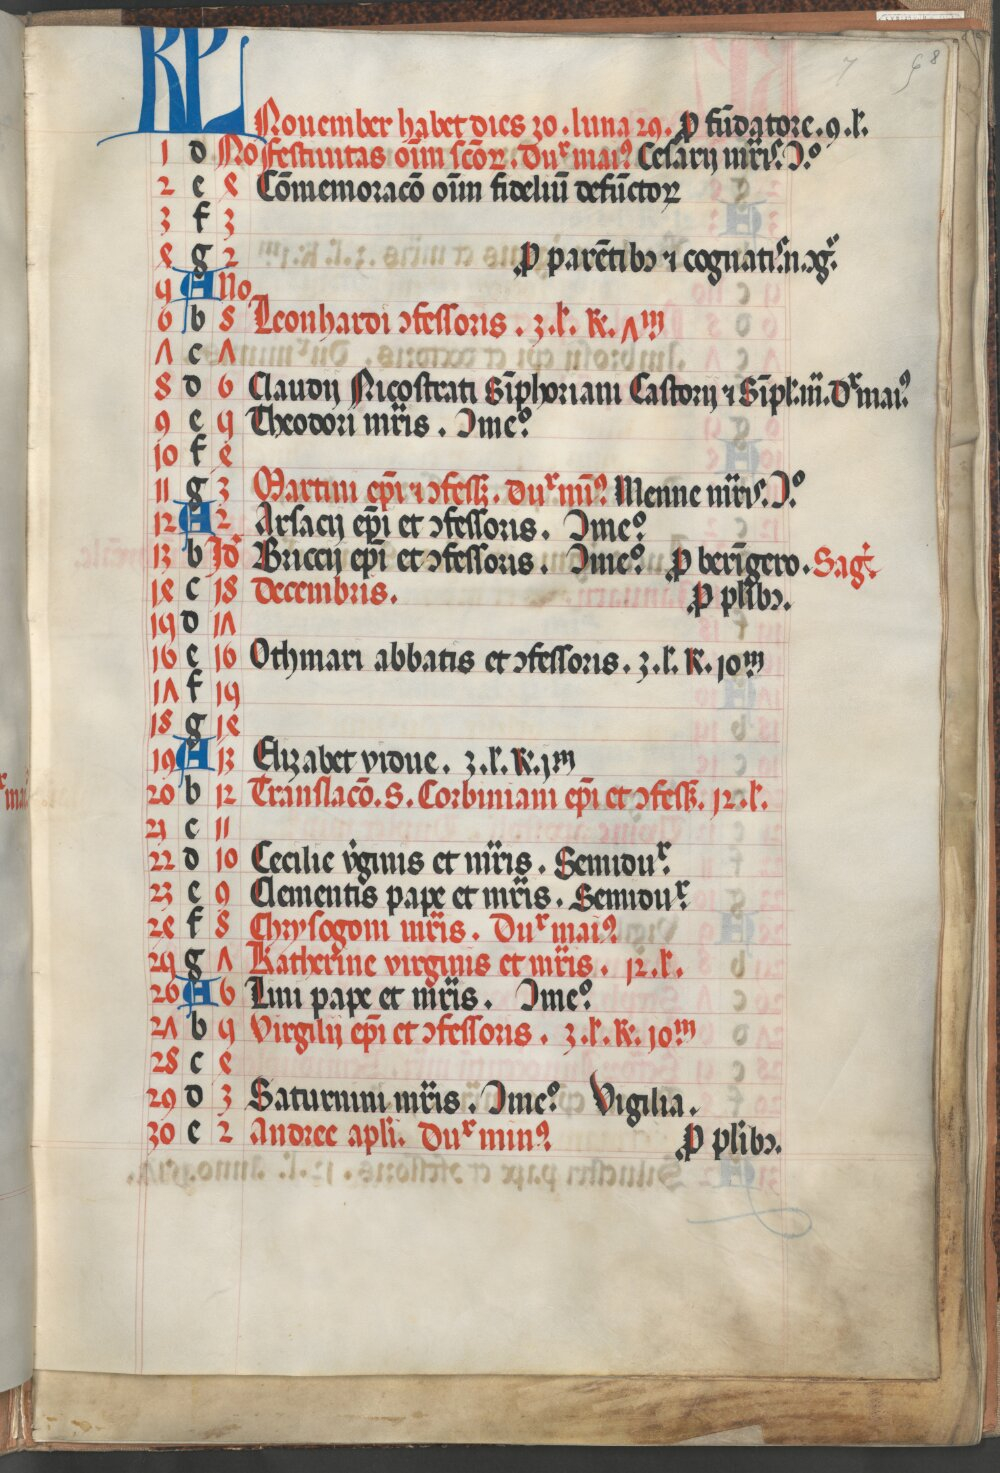 KL
Nouember habet dies 30. luna 29. P fūdatore. 9. l.
1 d No festiuitas oīm scōꝝ. Duˣ mai⁹ Cesarij mr̄is. Ↄ⁰
2 e 4 Cōmemoracō oīm fideliū defūctoꝝ
3 f 3
4 g 2 P parētibꝫ ⁊ cognatis. n. ꝯg.
5 A No
6 b 8 Leonhardi ꝯfessoris. 3. l. K. 7ᵐ
7 c 7
8 d 6 Claudij Nicostrati Sīphoriani Castorij ⁊ Sīpl. m̄. Dˣ mai⁹
9 e 5 Theodori mr̄is. Ↄme⁰
10 f 4
11 g 3 Martini ep̄i ⁊ ꝯfess. Duˣ mī⁹ Menne mr̄is. Ↄ⁰
12 A 2 Arsacij ep̄i et ꝯfessoris. Ↄme⁰
13 b Jd Briccij ep̄i et ꝯfessoris. Ↄme⁰ P berīgero. Sag.
14 c 18 decembris. P plībꝫ.
15 d 17
16 e 16 Othmari abbatis et ꝯfessoris. 3. l. K. 10ᵐ
17 f 15
18 g 14
19 A 13 Elizabet vidue. 3. l. K. 1ᵐ
20 b 12 Translacō. S. Corbiniani ep̄i et ꝯfess. 12. l.
21 c 11
22 d 10 Cecilie v̇ginis et mr̄is. Semiduˣ
23 e 9 Clementis pape et mr̄is. Semiduˣ
24 f 8 Chrysogoni mr̄is. Duˣ mai⁹
25 g 7 Katherine virginis et mr̄is. 12. l.
26 A 6 Lini pape et mr̄is. Ↄme⁰
27 b 5 Virgilij ep̄i et ꝯfessoris. 3. l. K. 10ᵐ
28 c 4
29 d 3 Saturnini mr̄is. Ↄme⁰ Vigilia.
30 e 2 Andree apli. Duˣ min⁹ P plībꝫ.